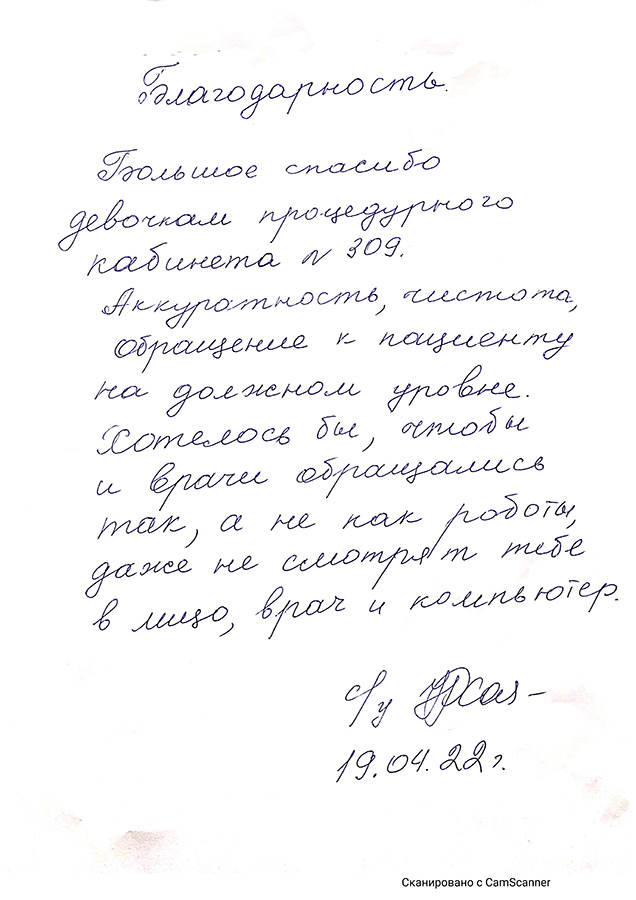 Благодарность.
Большое спасибо
девочкам процедурного
кабинета N 309.
Аккуратность, чистота,
обращение к пациенту
на должном уровне.
Хотелось бы, чтобы
и врачи обращались
так, а не как роботы,
даже не смотрят тебе
в лицо, врач и компьютер.
С/у
19.04.22 г.
Сканировано с CamScanner